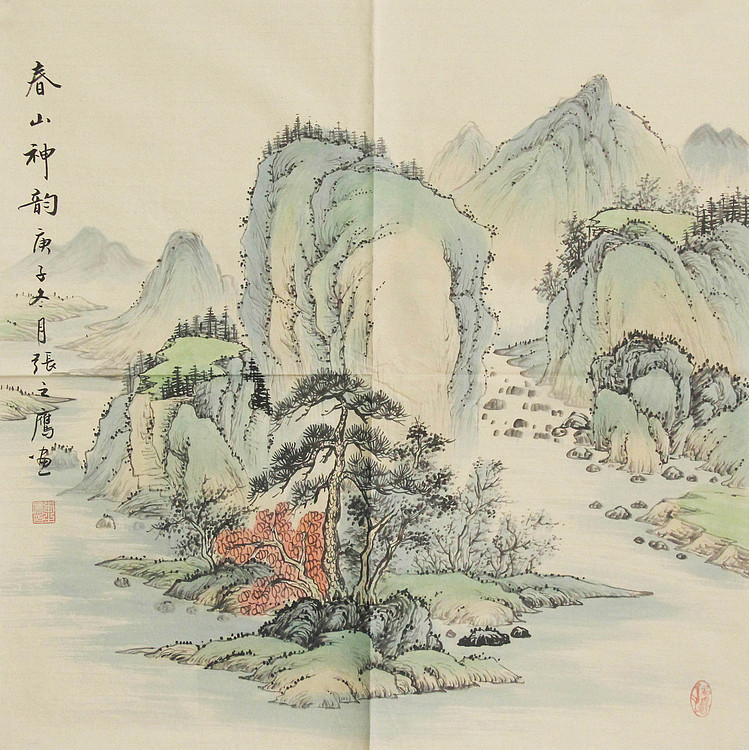 春山神韵庚子冬月張之鷹画